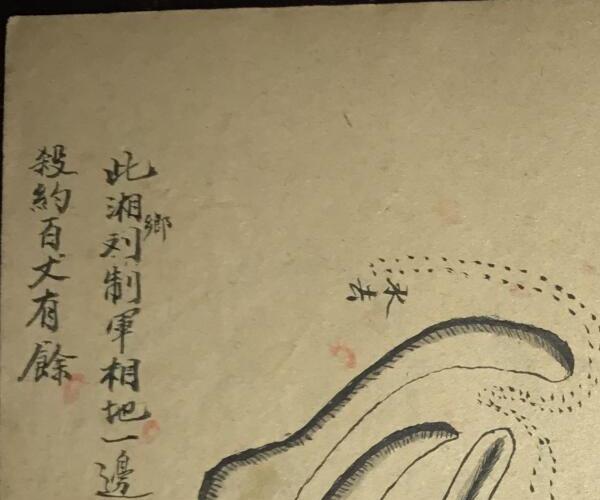 此湘鄉列制軍相地一邊
殺約百丈有餘
水去